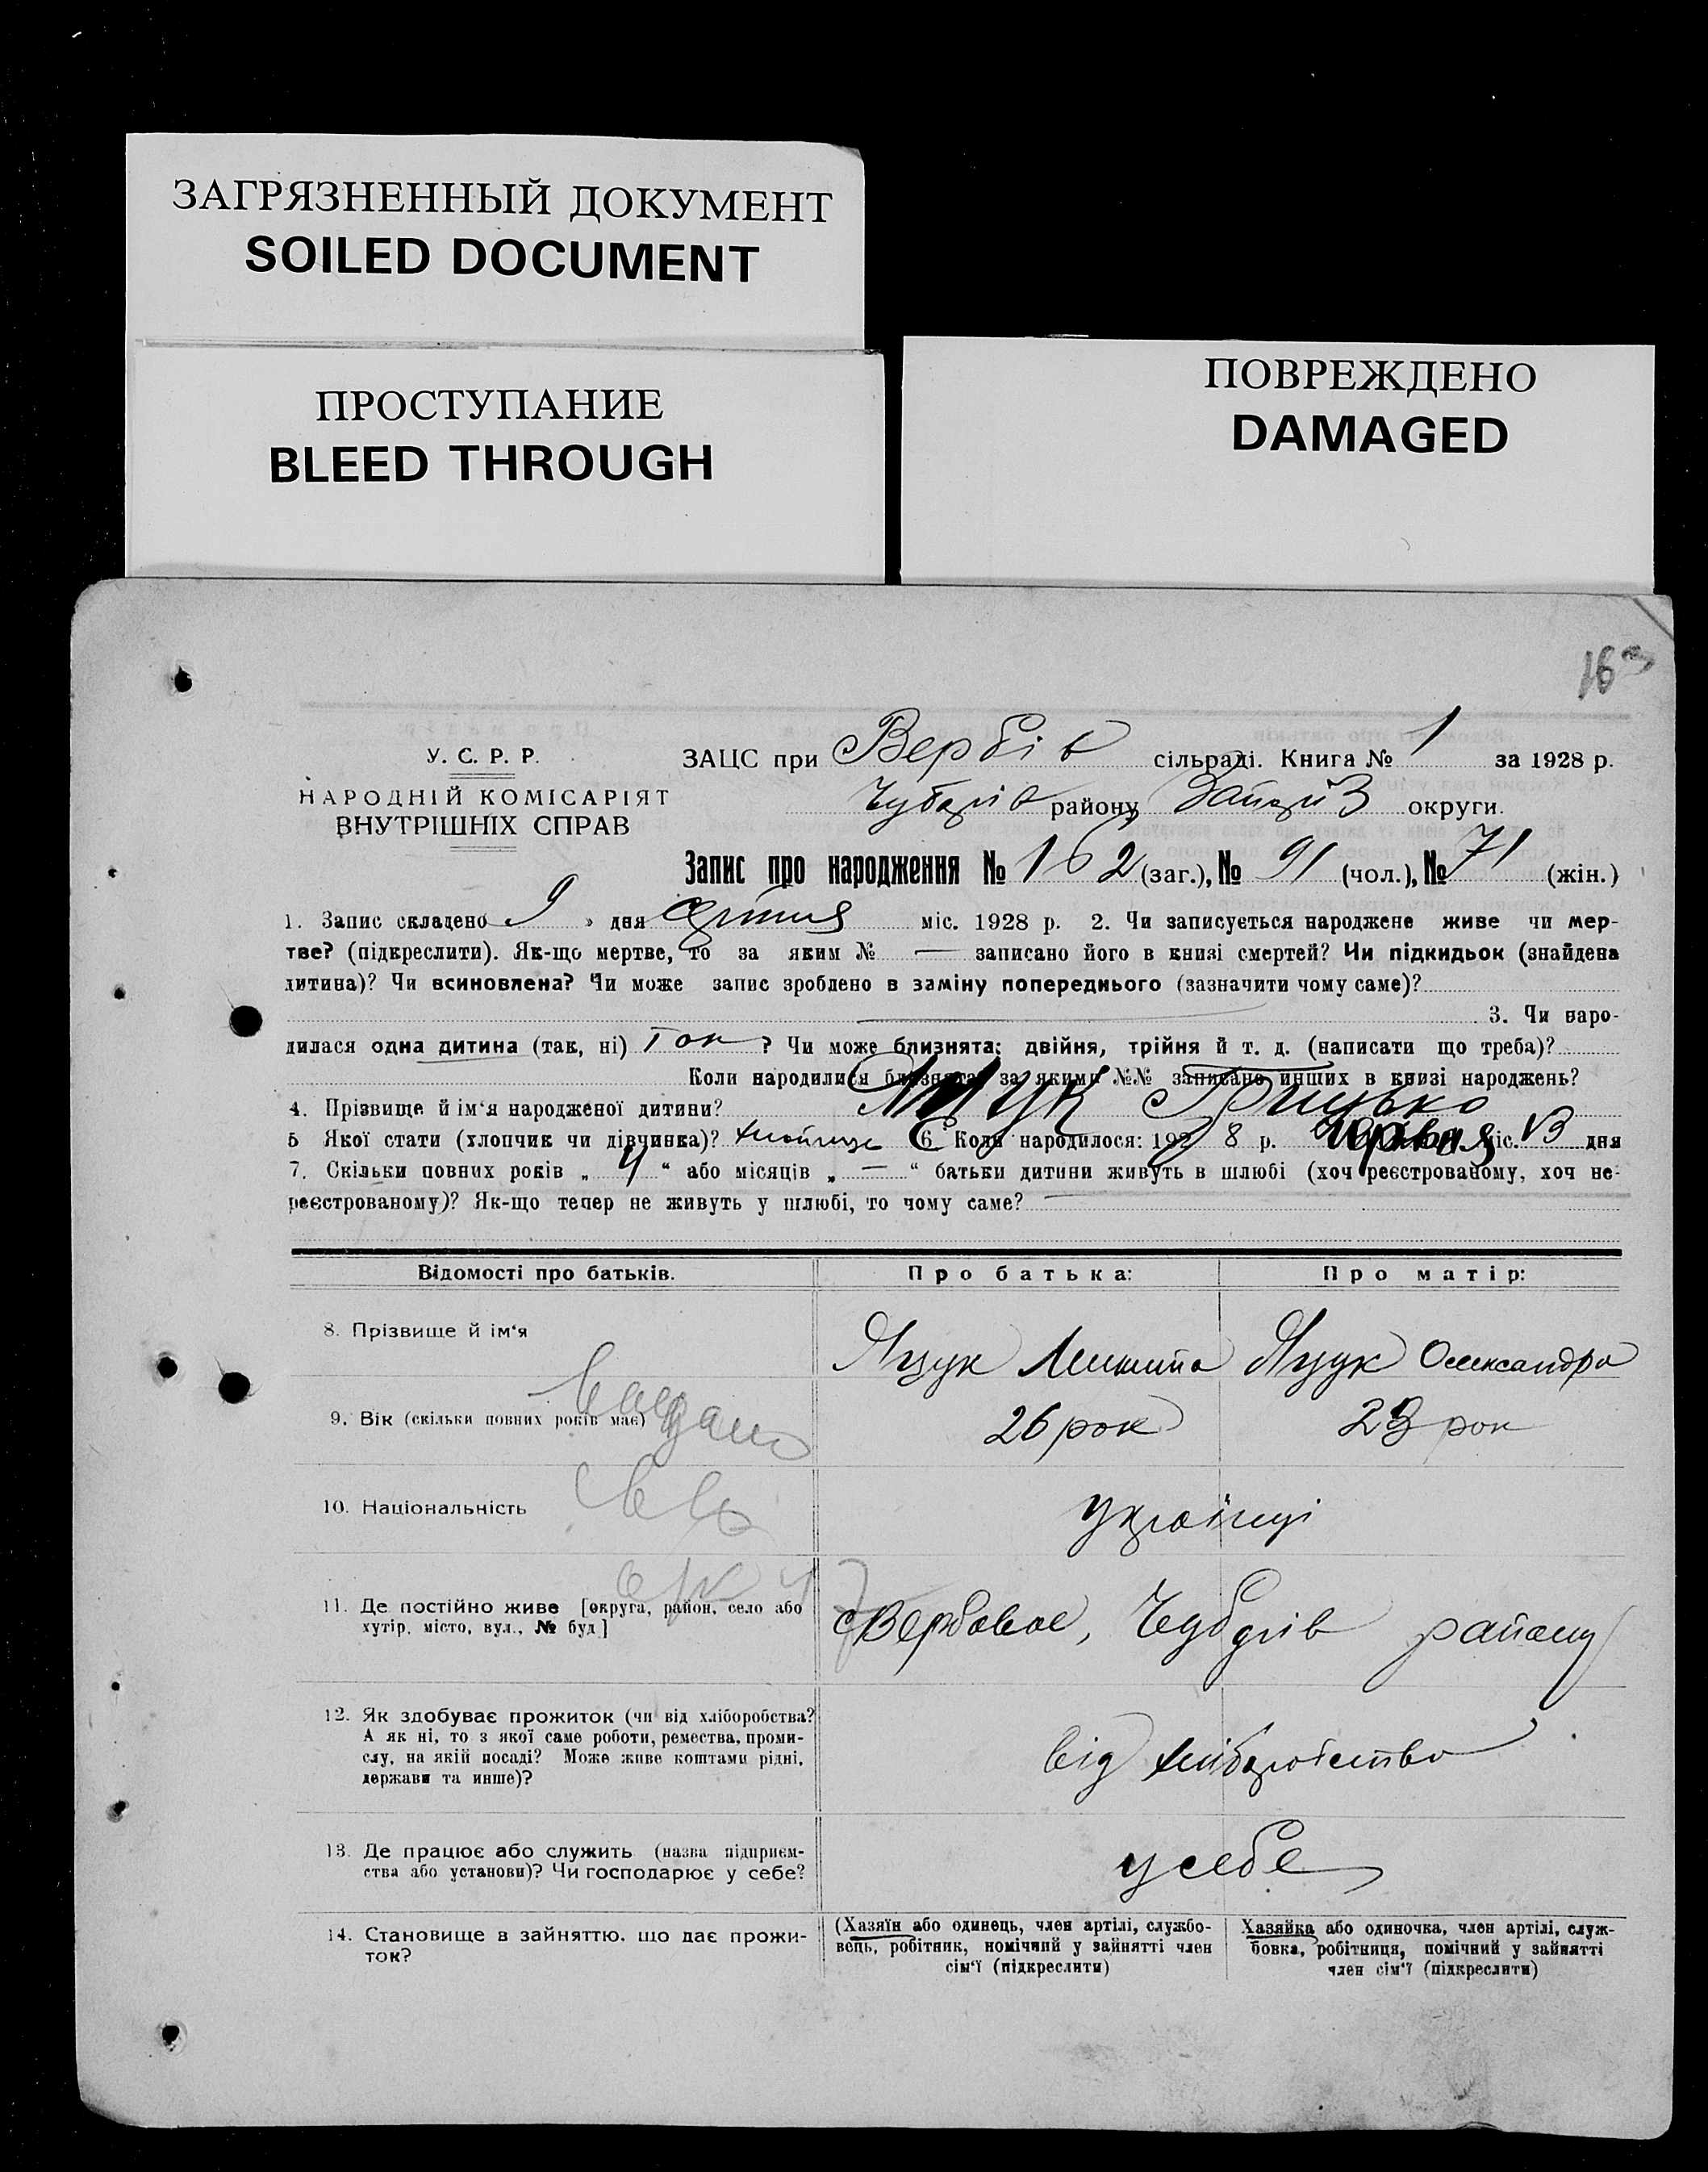 ЗАГРЯЗНЕННЫЙ ДОКУМЕНТ
SOILED DOCUMENT
ПРОСТУПАНИЕ
BLEED THROUGH
ПОВРЕЖДЕНО
DAMAGED
16
У. С. Р. Р.
НАРОДНІЙ КОМІСАРІЯТ
ВНУТРІШНІХ СПРАВ
ЗАЦС при Вербів сільраді. Книга № 1 за 1928 р.
Чубарів району округи.
Запис про народження № 162 (заг.), № 91 (чол.), № 71 (жін.)
1. Запис складено 9 » дня міс. 1928 р. 2. Чи записується народжене живе чи мер-
тве? (підкреслити). Як-що мертве, то за яким № — записано його в книзі смертей? Чи підкидьок (знайдена
дитина)? Чи всиновлена? Чи може запис зроблено в заміну попереднього (зазначити чому саме)?
3. Чи наро-
дилася одна дитина (так, ні) Так ? Чи може близнята: двійня, трійня й т. д. (написати що треба)?
Коли народилися близнята, за якими №№ записано инших в книзі народжень?
4. Прізвище й ім'я народженої дитини? Яцук Грицько
5 Якої стати (хлопчик чи дівчинка)? 6. Коли народилося: 1928 р. червня міс. 13 дня
7. Скільки повних років „ 4 “ або місяців „ — “ батьки дитини живуть в шлюбі (хоч реєстрованому, хоч не-
реєстрованому)? Як-що тепер не живуть у шлюбі, то чому саме? —
Відомості про батьків. Про батька: Про матір:
8. Прізвище й ім'я
Яцук Микита Яцук Олександра
9. Вік (скільки повних років має) 26 рок 23 рок
10. Національність українці
11. Де постійно живе [округа, район, село або
хутір, місто, вул., № буд.]
с Вербовое, Чубарів району
12. Як здобуває прожиток (чи від хліборобства?
А як ні, то з якої саме роботи, ремества, проми-
слу, на якій посаді? Може живе коштами рідні,
держави та инше)?
від хліборобства
13. Де працює або служить (назва підприєм-
ства або установи)? Чи господарює у себе?
у себе
14. Становище в зайняттю, що дає прожи-
ток?
(Хазяїн або одинець, член артілі, службо-
вець, робітник, помічний у зайнятті член
сім'ї (підкреслити)
Хазяйка або одиночка, член артілі, служ-
бовка, робітниця, помічний у зайнятті
член сім'ї (підкреслити)